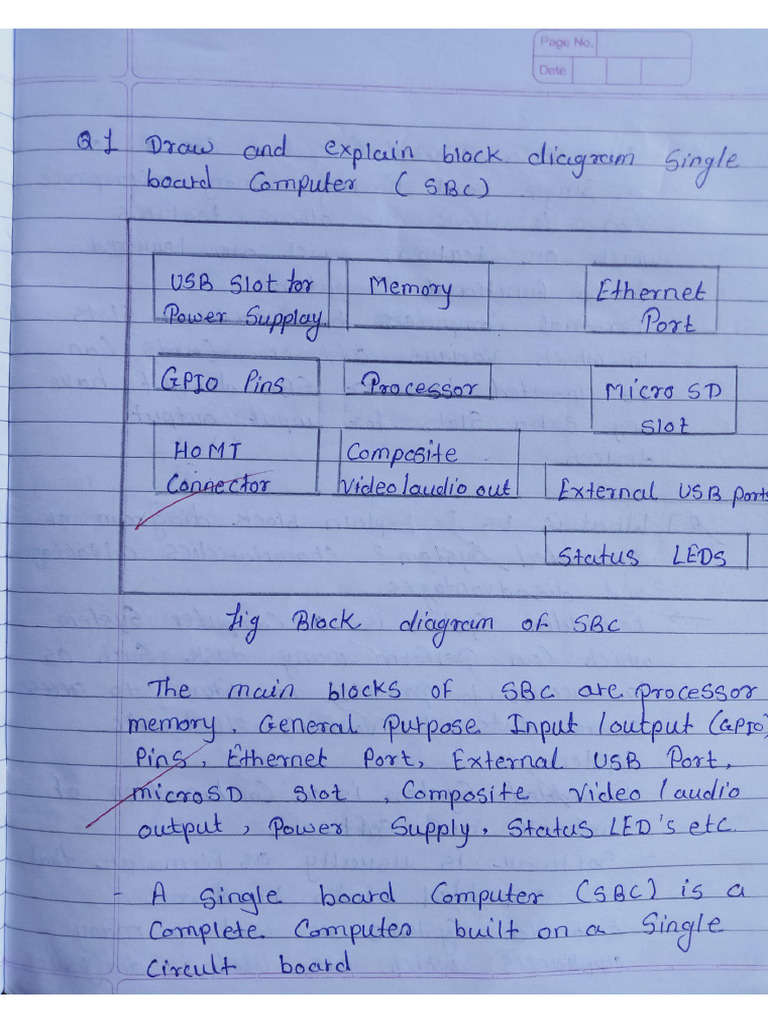 Page No.
Date
Q.1 Draw and explain block diagram Single
board Computer ( SBC)
USB Slot for
Power Supplay
Memory
Ethernet
Port
GPIO Pins
Processor
Micro SD
Slot
HOMI
Connector
Composite
Video/audio out
External USB Ports
Status LEDs
fig Block diagram of SBC
The main blocks of SBC are processor
memory, General Purpose Input /output (GPIO)
Pins, Ethernet Port, External USB Port,
microSD Slot, Composite Video / audio
output, Power Supply, Status LED's etc.
- A Single board Computer (SBC) is a
Complete Computer built on a Single
Circult board